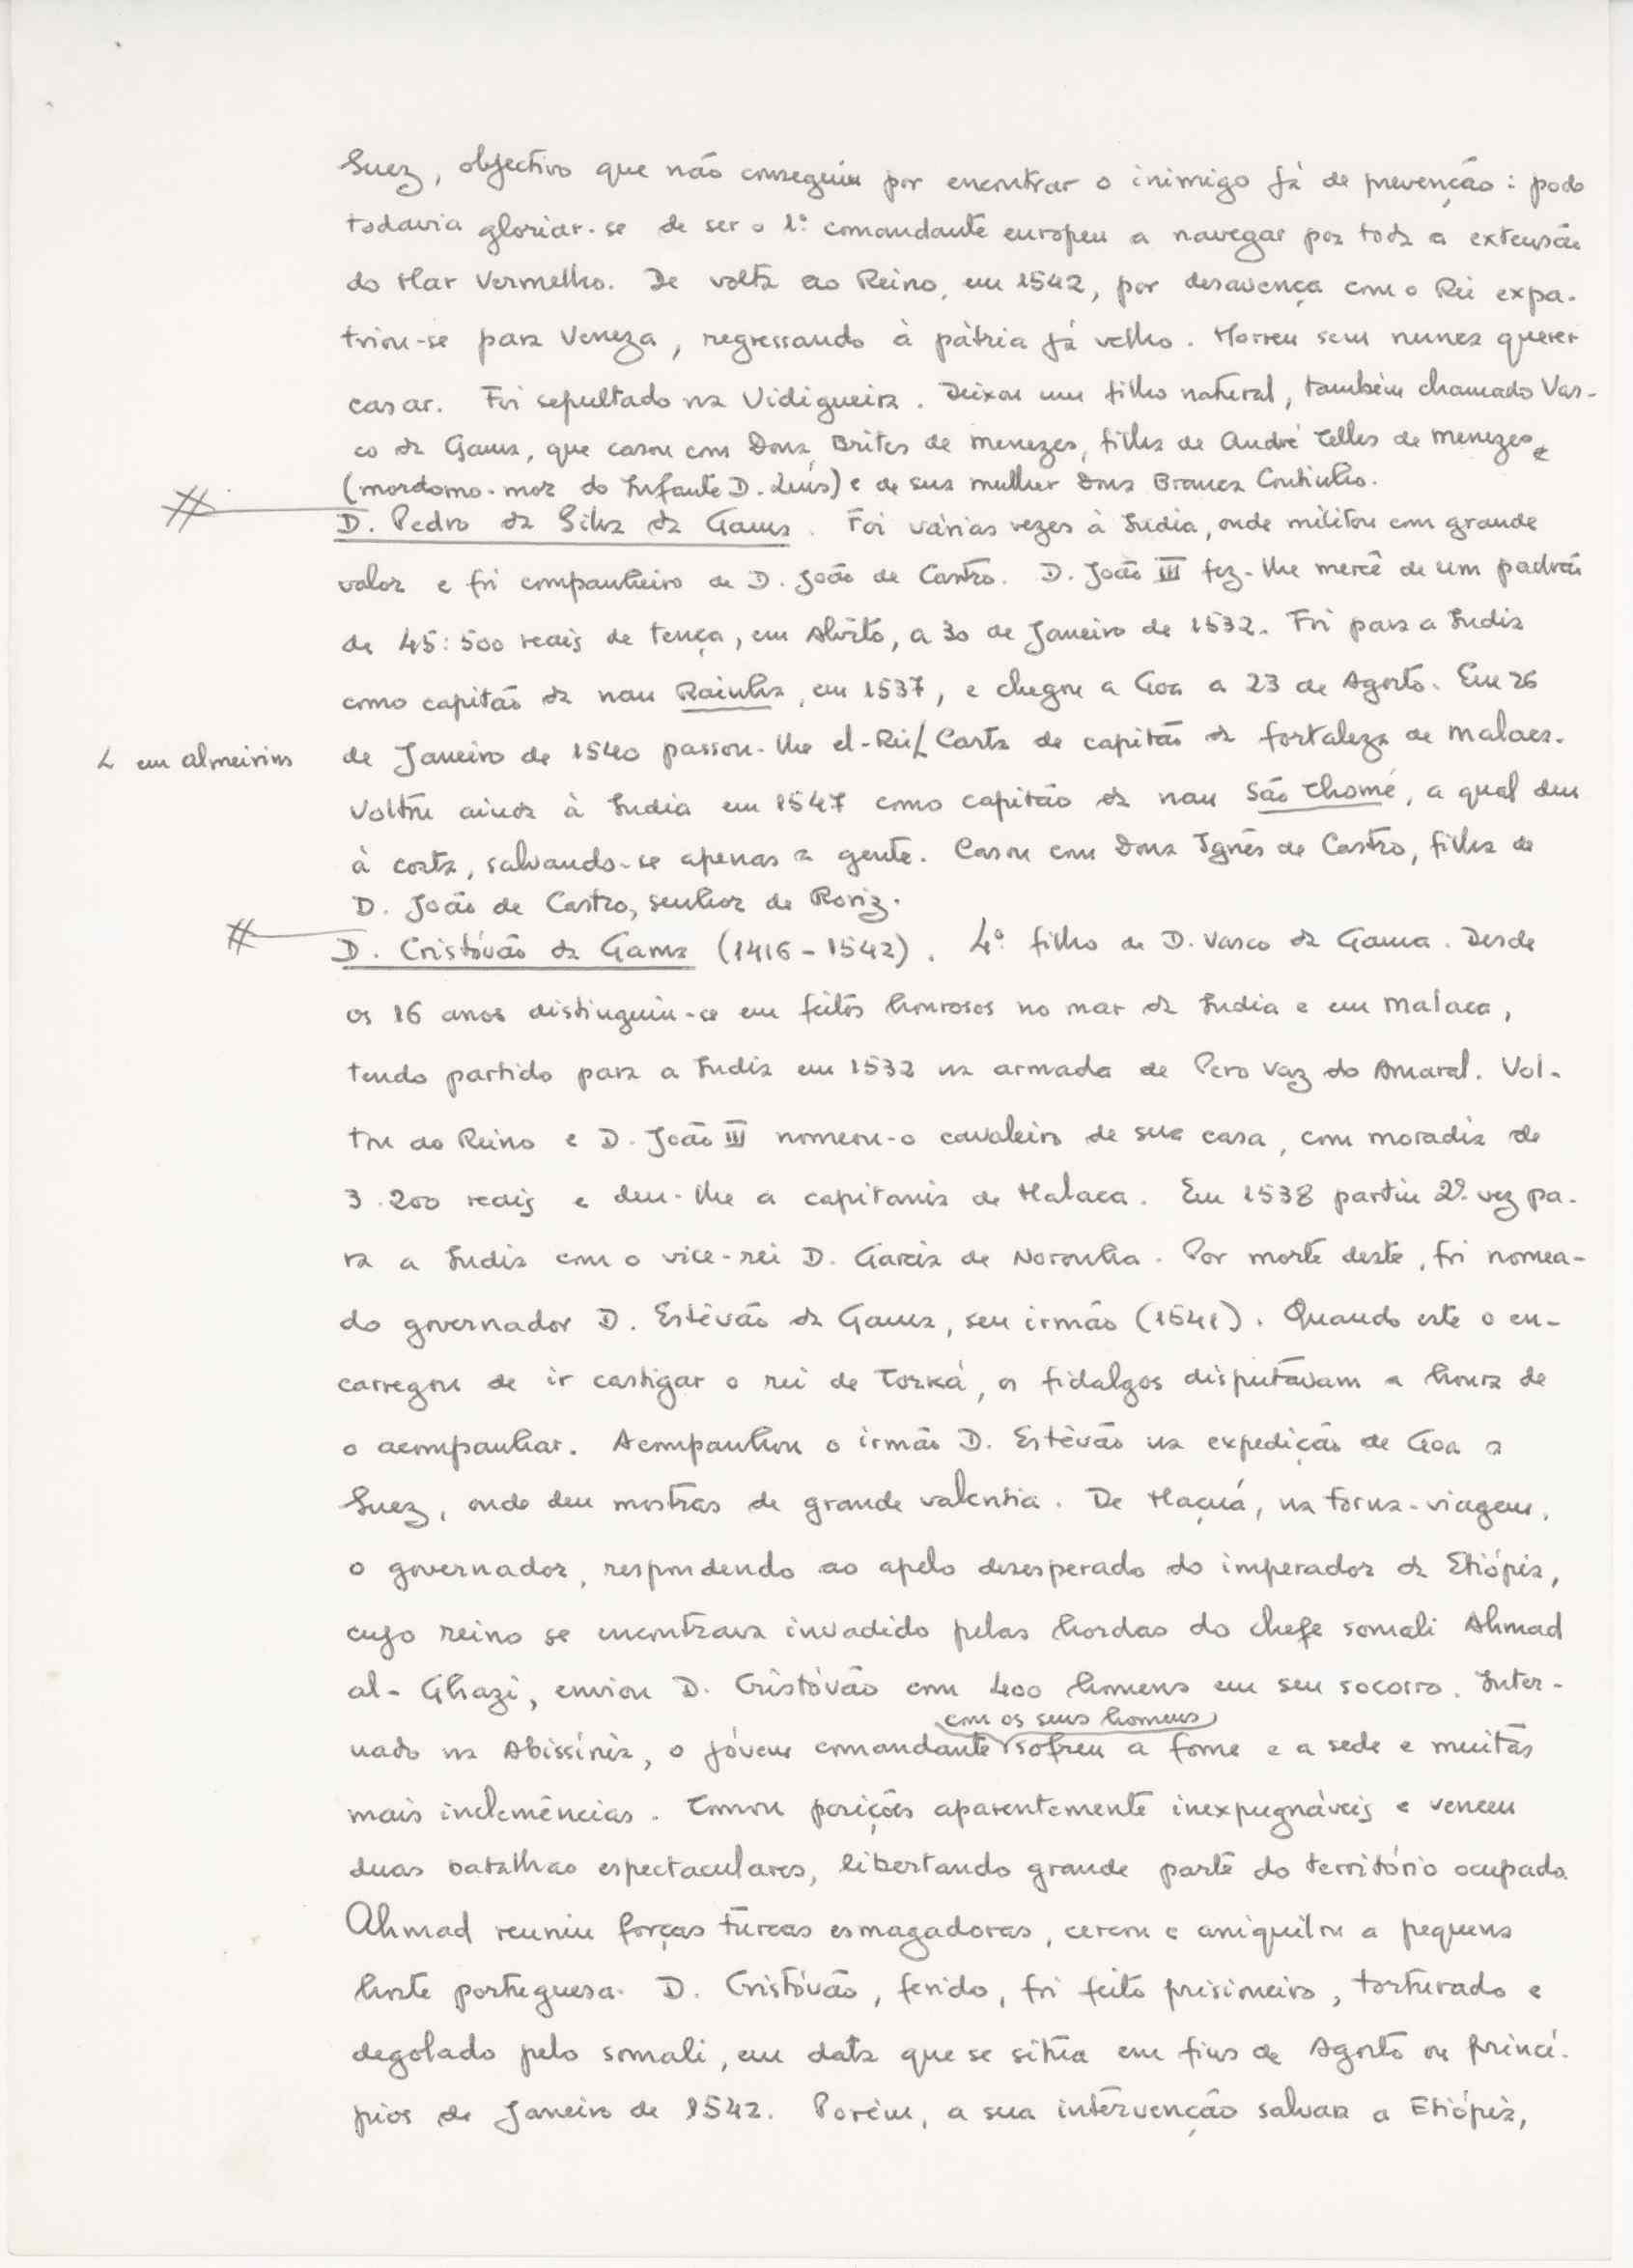 Suez, objectivo que não conseguiu por encontrar o inimigo já de prevenção: pode
todavia gloriar-se de ser o 1º comandante europeu a navegar por toda a extensão
do Mar Vermelho. De volta ao Reino, em 1542, por desavença com o Rei expa-
triou-se para Veneza, regressando à pátria já velho. Morreu sem nunca querer
casar. Foi sepultado na Vidigueira. Deixou um filho natural, também chamado Vas-
co da Gama, que casou com Dona Brites de Menezes, filha de André Telles de Menezes
(mordomo-mor do Infante D. Luís) e de sua mulher Dona Branca Coutinho.
# D. Pedro da Silva da Gama. Foi várias vezes à India, onde militou com grande
valor e foi companheiro de D. João de Castro. D. João III fez-lhe mercê de um padrão
de 45:500 reais de tença, em Alvito, a 30 de Janeiro de 1532. Foi para a India
como capitão da nau Rainha, em 1537, e chegou a Goa a 23 de Agosto. Em 26
L em Almeirim
de Janeiro de 1540 passou-lhe el-Rei L Carta de capitão da fortaleza de Malaca.
Voltou ainda à India em 1547 como capitão da nau São Thomé, a qual deu
à costa, salvando-se apenas a gente. Casou com Dona Ignês de Castro, filha de
D. João de Castro, senhor de Roriz.
# D. Cristóvão da Gama (1416-1542). 4º filho de D. Vasco da Gama. Desde
os 16 anos distinguiu-se em feitos honrosos no mar da India e em Malaca,
tendo partido para a India em 1532 na armada de Pero Vaz do Amaral. Vol-
tou ao Reino e D. João III nomeou-o cavaleiro de sua casa, com moradia de
3.200 reais e deu-lhe a capitania de Malaca. Em 1538 partiu 2ª vez pa-
ra a India com o vice-rei D. Garcia de Noronha. Por morte deste, foi nomea-
do governador D. Estêvão da Gama, seu irmão (1541). Quando este o en-
carregou de ir castigar o rei de Torká, os fidalgos disputavam a honra de
o acompanhar. Acompanhou o irmão D. Estêvão na expedição de Goa a
Suez, onde deu mostras de grande valentia. De Maçuá, na torna-viagem,
o governador, respondendo ao apelo desesperado do imperador da Etiópia,
cujo reino se encontrava invadido pelas hordas do chefe somali Ahmad
al-Ghazi, enviou D. Cristóvão com 400 homens em seu socorro. Inter-
com os seus homens
nado na Abissínia, o jóvem comandante sofreu a fome e a sede e muitas
mais inclemências. Tomou posições aparentemente inexpugnáveis e venceu
duas batalhas espectaculares, libertando grande parte do território ocupado.
Ahmad reuniu forças turcas esmagadoras, cercou e aniquilou a pequena
hoste portuguesa. D. Cristóvão, ferido, foi feito prisioneiro, torturado e
degolado pelo somali, em data que se situa em fins de Agosto ou princí-
pios de Janeiro de 1542. Porém, a sua intervenção salvara a Etiópia,